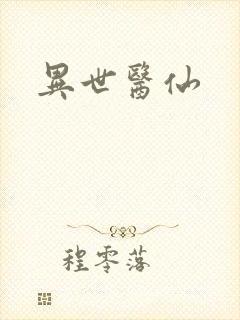 異世醫仙
程零落